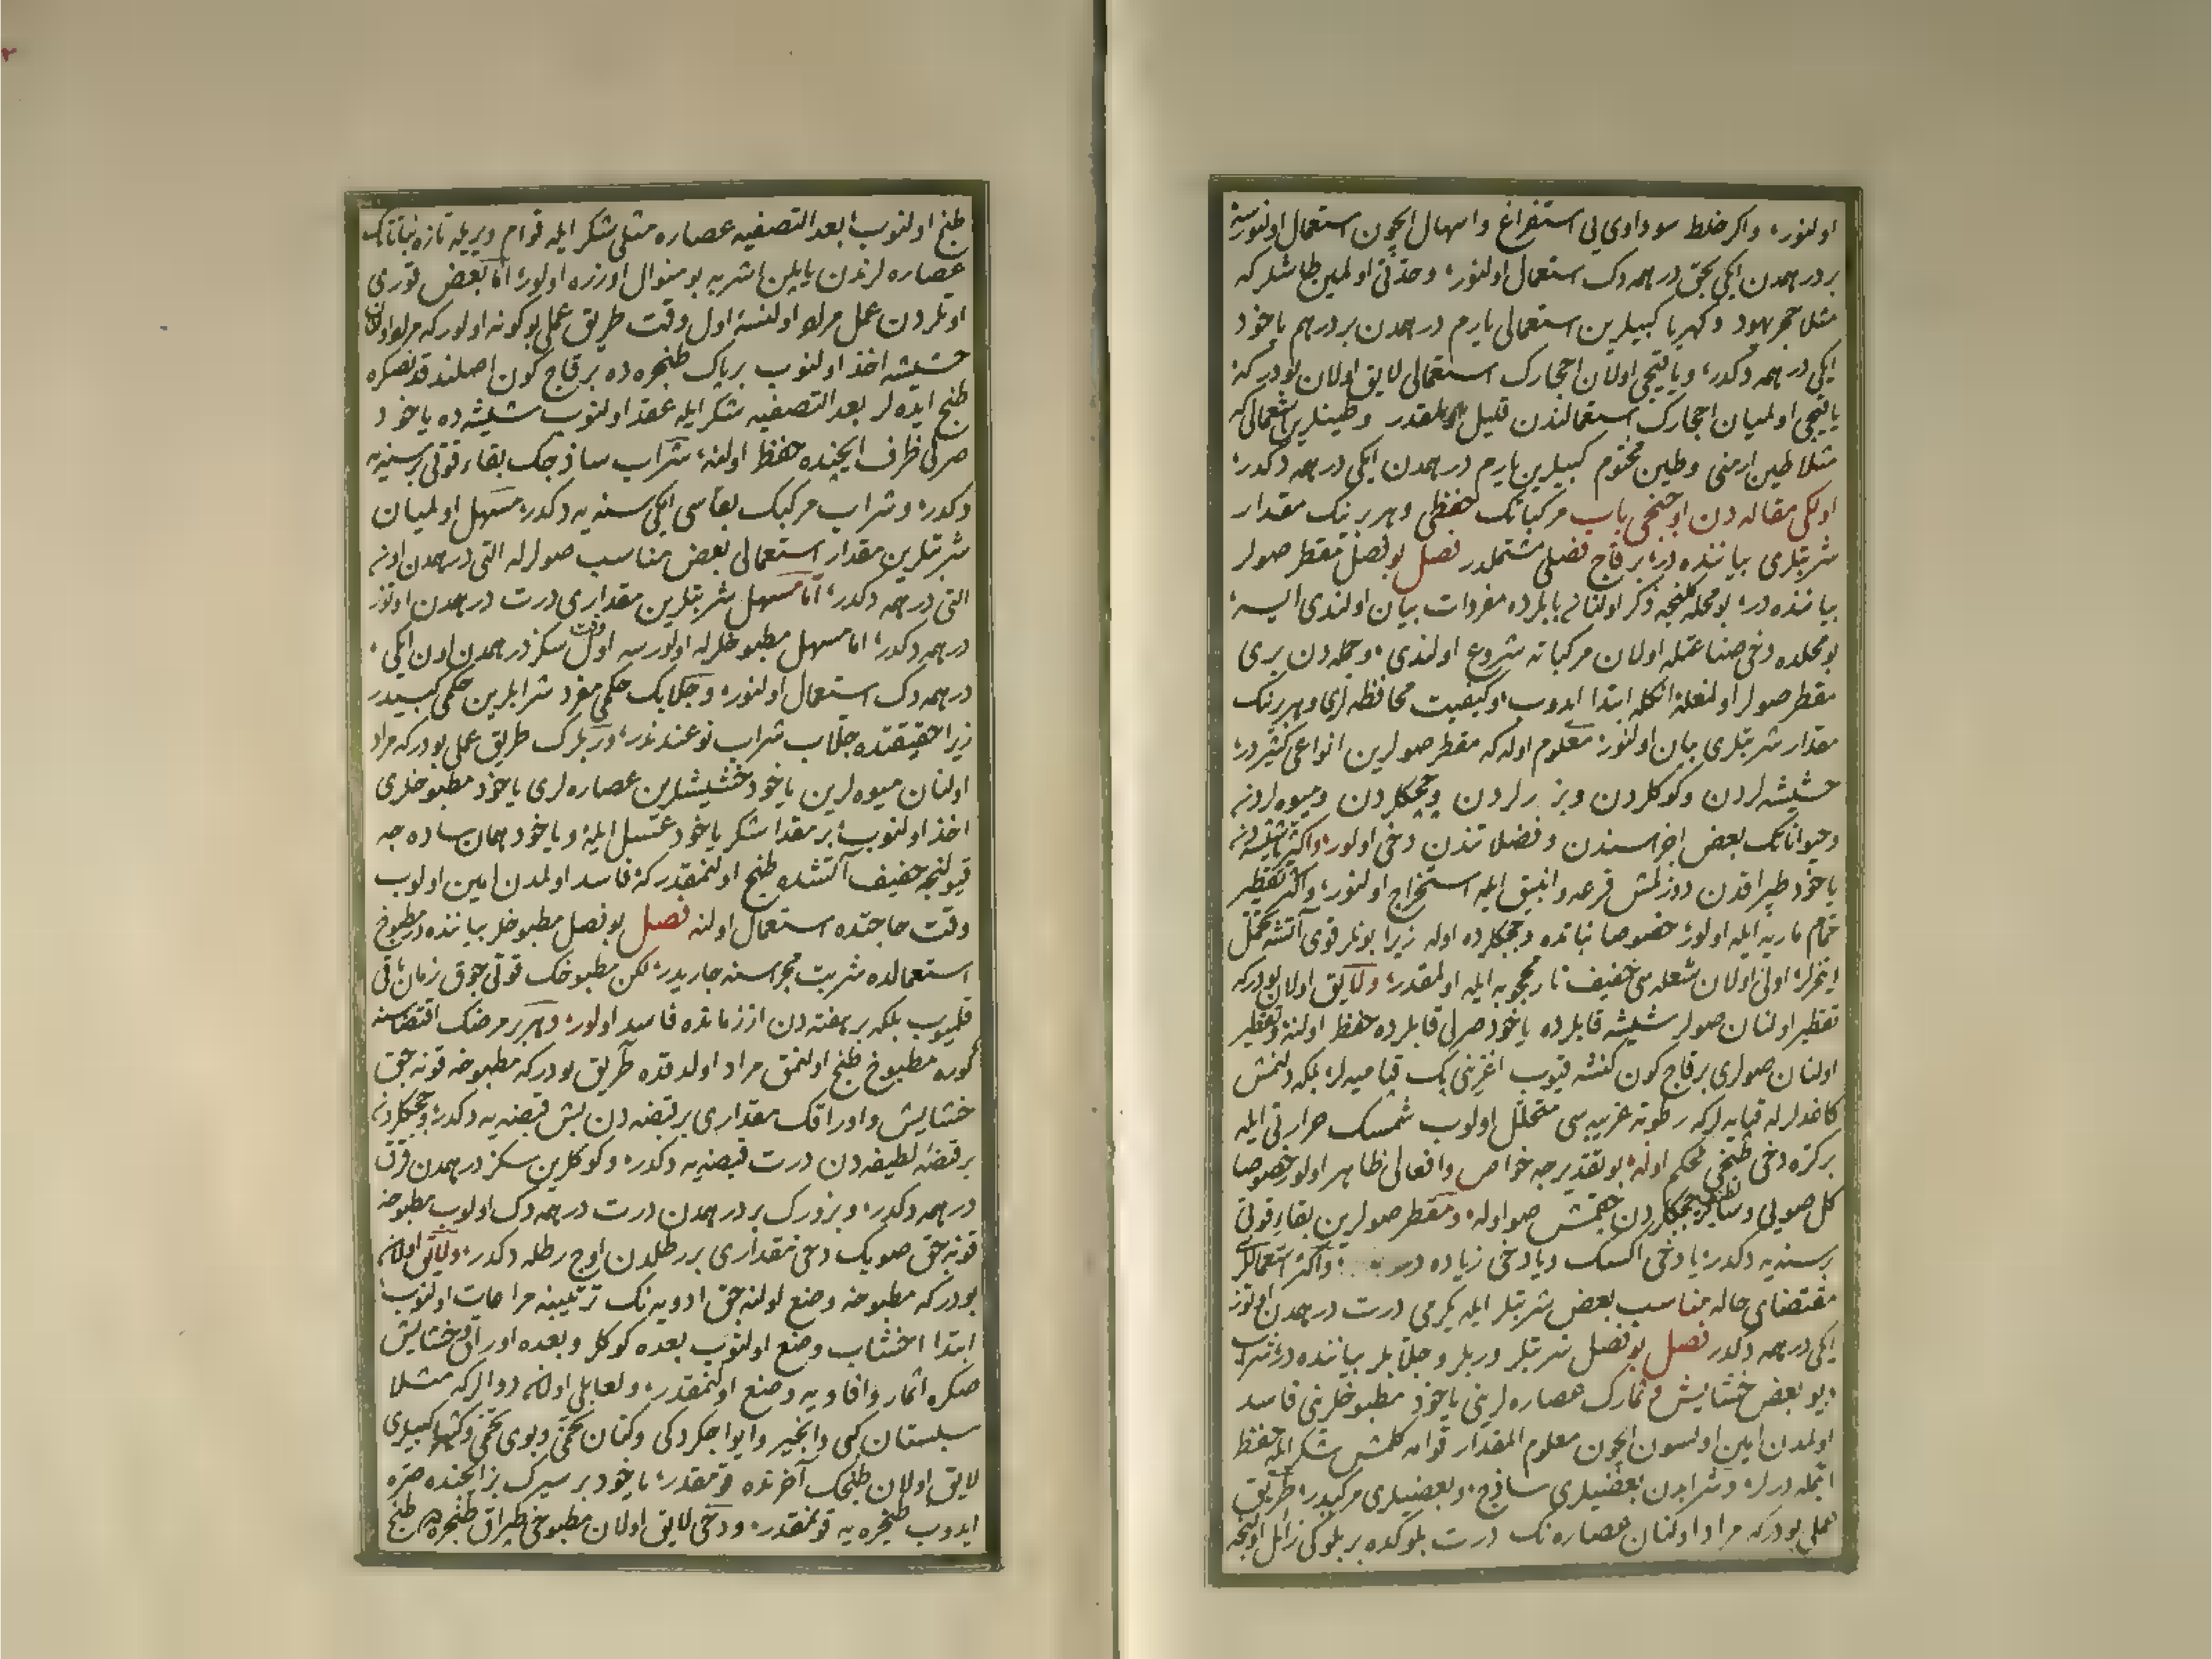 اولنور، واكر خلط سوداوی یی استفراغ واسهال ایچون استعمال اولنورسه
بر درهمدن ایكی بچق درهمه دك استعمال اولنور، وحدّتی اولمین طاشلر كه
مثلا حجر یهود وكهربا كبیلرین استعمالی یارم درهمدن بر درهم یاخود
ایكی درهمه دكدر، ویاقیجی اولان احجارك استعمالی لایق اولان بودر كه
یاقیجی اولمیان احجارك استعمالندن قلیل اولمقدر وطینلرین استعمالی كه
مثلا طین ارمنی وطین مختوم كبیلرین یارم درهمدن ایكی درهمه دكدر،
اولكی مقاله دن اوچنجی باب مركباتك حفظی وهر برینك مقدار
شربتلری بیاننده در، بر قاچ فصلی مشتملدر فصل بو فصل مقطر صولر
بیاننده در، بو محله كلنجه ذكر اولنان بابلرده مفردات بیان اولندی ایسه،
بو محلده دخی صناعتله اولان مركباته شروع اولندی، وجمله دن بری
مقطر صولر اولمغله انكله ابتدا ایدوب، وكیفیت محافظه لری وهر برینك
مقدار شربتلری بیان اولنور، معلوم اوله كه مقطر صولرین انواعی كثیردر،
حشیشه لردن وكوكلردن وبزرلردن وچیچكلردن ومیوه لردن
وحیواناتك بعض اجزاسندن وفضلاتندن دخی اولور، واكثر شیشه دن
یاخود طپراقدن دوزلمش قرعه وانبیق ایله استخراج اولنور، واكثر تقطیر
حمام ماریه ایله اولور، خصوصا نباتده وچیچكلرده اوله زیرا بونلر قوی آتشه تحمل
ایتمزلر، اولی اولان شعله سی خفیف نار محجوبه ایله اولمقدر، ولایق اولان بودر كه
تقطیر اولنان صولر شیشه قابلرده یاخود صرلی قابلرده حفظ اولنه، وتقطیر
اولنان صولری بر قاچ كون كنشه قیوب اغزینی پك قپامیه لر، بلكه دلنمش
كاغدلر له قپایه لر كه رطوبة غریبه سی متحلل اولوب شمسك حرارتی ایله
بر كره دخی طبخی محكم اوله، بو تقدیرجه خواص وافعالی ظاهر اولور خصوصا
كل صویی وسائر لطیف چیچكلردن چقمش صو اوله، ومقطر صولرین بقاء قوتی
بر سنه یه دكدر، یا دخی اكسك ویا دخی زیاده در واكثر استعماللری
مقتضای حاله مناسب بعض شربتلر ایله یكرمی درت درهمدن اوتوز
ایكی درهمه دكدر فصل بو فصل شربتلر وربلر وجلابلر بیاننده در، شراب
دیو بعض خشایش وثمارك عصاره لرینی یاخود مطبوخلرینی فاسد
اولمدن امین اولسون ایچون معلوم المقدار قوامه كلمش شكر ایله حفظ
ایتمله درلر، وشرابدن بعضیلری ساذج، وبعضیلری مركبدر، طریق
عملی بودر كه مراد اولنان عصاره نك درت بلوكده بر بلوكی زائل اولنجه
طبخ اولنوب، بعد التصفیه عصاره مثلی شكر ایله قوام ویریله تازه نباتاتك
عصاره لرندن یاپیلن اشربه بو منوال اوزره اولور، اما بعض قوری
اوتلردن عمل مراد اولنسه اول وقت طریق عملی بو كونه اولور كه مراد اولنان
حشیشه اخذ اولنوب بر پاك طنجره ده بر قاچ كون اصلندقدنصكره
طبخ ایده لر بعد التصفیه شكر ایله عقد اولنوب شیشه ده یاخود
صرلی ظرف ایچنده حفظ اولنه، شراب ساذجك بقاء قوتی بر سنه یه
دكدر، وشراب مركبك بقاسی ایكی سنه یه دكدر، مسهل اولمیان
شربتلرین مقدار استعمالی بعض مناسب صولر له التی درهمدن اون
التی درهمه دكدر، اما مسهل شربتلرین مقداری درت درهمدن اوتوز
درهمه دكدر، اما مسهل مطبوخلر له اولورسه اول وقت سكز درهمدن اون ایكی،
درهمه دك استعمال اولنور، وجلابك حكمی مفرد شرابلرین حكمی كبیدر
زیرا حقیقتده جلاب شراب نوعندندر، وربلرك طریق عملی بودر كه مراد
اولنان میوه لرین یاخود حشیشلرین عصاره لری یاخود مطبوخلری
اخذ اولنوب، بر مقدار شكر یاخود عسل ایله، ویاخود همان ساده جه
قیولنجه خفیف آتشده طبخ اولنمقدر كه، فاسد اولمدن امین اولوب
وقت حاجتده استعمال اولنه فصل بو فصل مطبوخلر بیاننده در مطبوخ
استعمالده شربت مجراسنه جاریدر، لكن مطبوخك قوتی چوق زمان باقی
قلمیوب بلكه بر هفته دن از زمانده فاسد اولور، وهر بر مرضك اقتضاسنه
كوره مطبوخ طبخ اولنمق مراد اولدقده طریق بودر كه مطبوخه قونه جق
خشایش واوراقك مقداری بر قبضه دن بش قبضه یه دكدر، وچیچكلردن
بر قبضۀ لطیفه دن درت قبضه یه دكدر، وكوكلرین سكز درهمدن قرق
درهمه دكدر، وبزورك بر درهمدن درت درهمه دك اولوب مطبوخه
قونه جق صویك دخی مقداری بر رطلدن اوچ رطله دكدر، ولایق اولان
بودر كه مطبوخه وضع اولنه جق ادویه نك ترتیبنه مراعات اولنوب،
ابتدا اخشاب وضع اولنوب بعده كوكلر وبعده اوراق وخشایش
صكره اثمار وافاویه وضع اولنمقدر، ولعابلی اولان دوالر كه مثلا
سبستان كبی وانجیر وایوا چكردكی وكتان تخمی وبوی تخمی وكثیرا كبیلری
لایق اولان طبخك آخرنده قومقدر، یاخود بر سیرك بز ایچنده صره
ایدوب طنجره یه قومقدر، ودخی لایق اولان مطبوخی طپراق طنجره ده طبخ